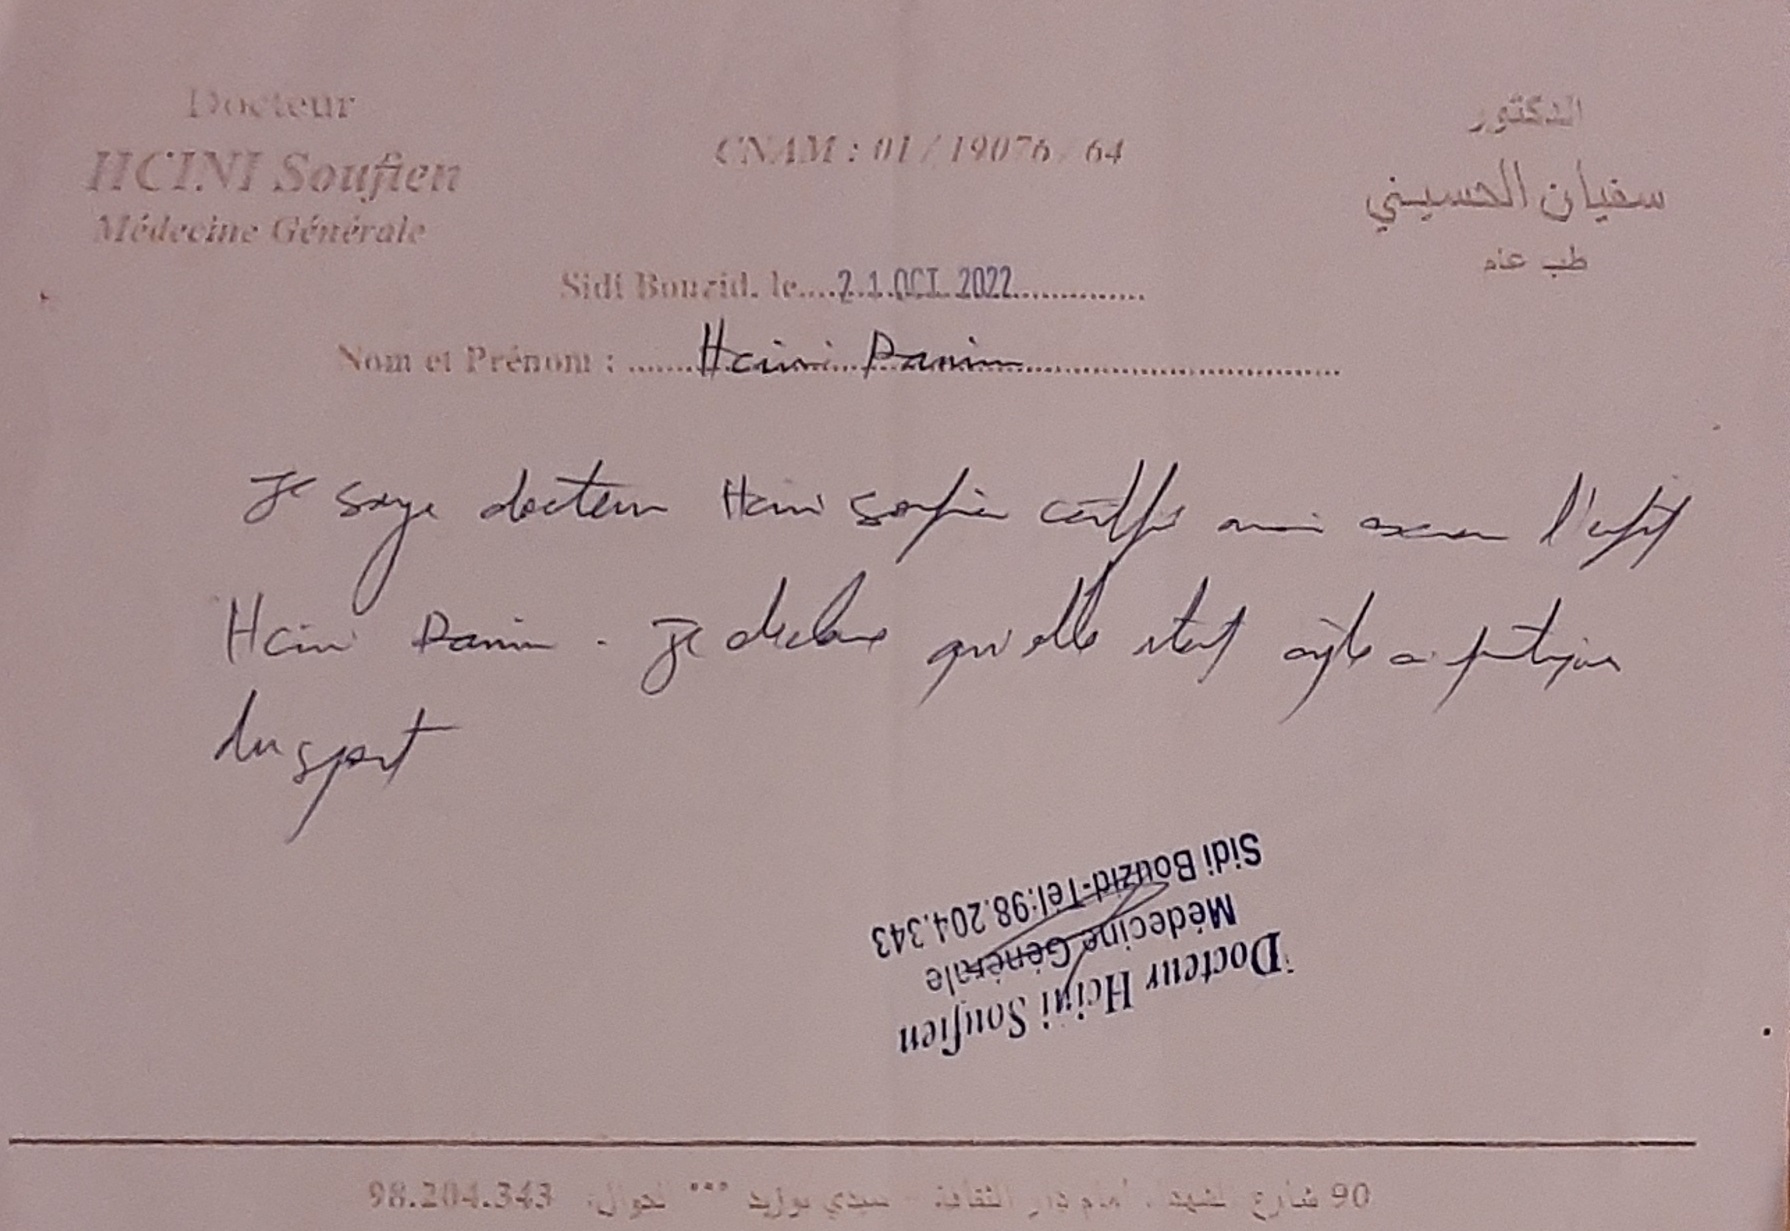 Docteur
HCINI Soufien
Médecine Générale
CNAM : 01 / 19076 / 64
الدكتور
سفيان الحسيني
طب عام
Sidi Bouzid, le....21 OCT 2022................
Nom et Prénom : ....... Hcini Panim
Je docteur Hcini Soufien certifie avoir l'enfant
Hcini . Je declare qu'elle à pratiquer
du sport
Docteur Hcini Soufien
Médecine Générale
Sidi Bouzid-Tél:98.204.343
90 شارع الشهداء، أمام دار الثقافة - سيدي بوزيد *** الجوال: 98.204.343